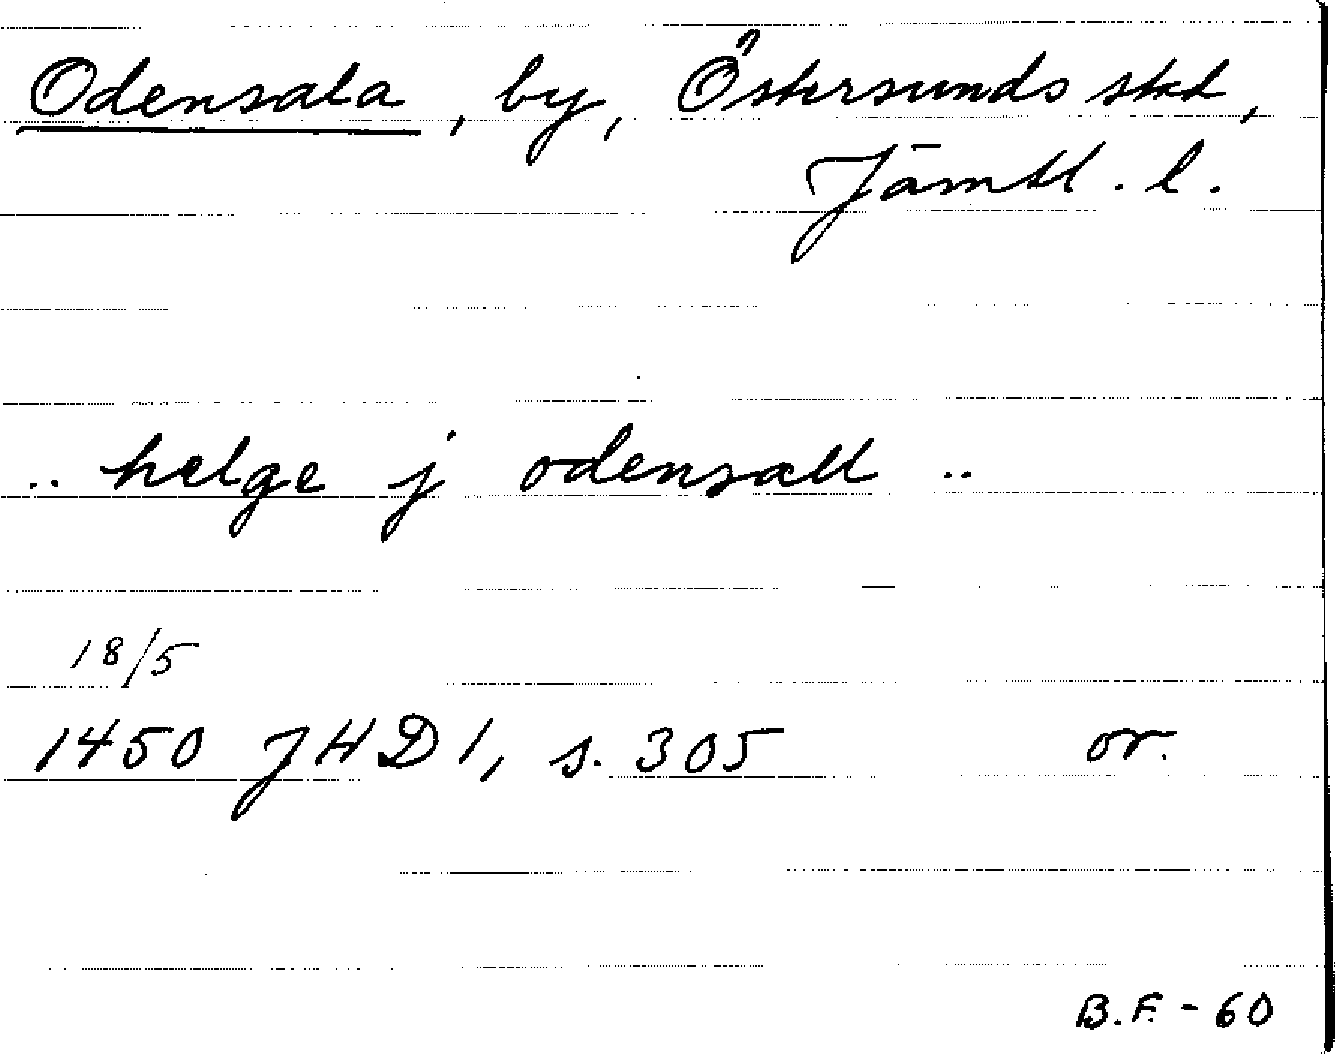 Odensala, by, Östersunds skd,
Jämtl. l.
.. helge j odensall ..
18/5
1450 JHD 1, s. 305 or.
B.F. - 60